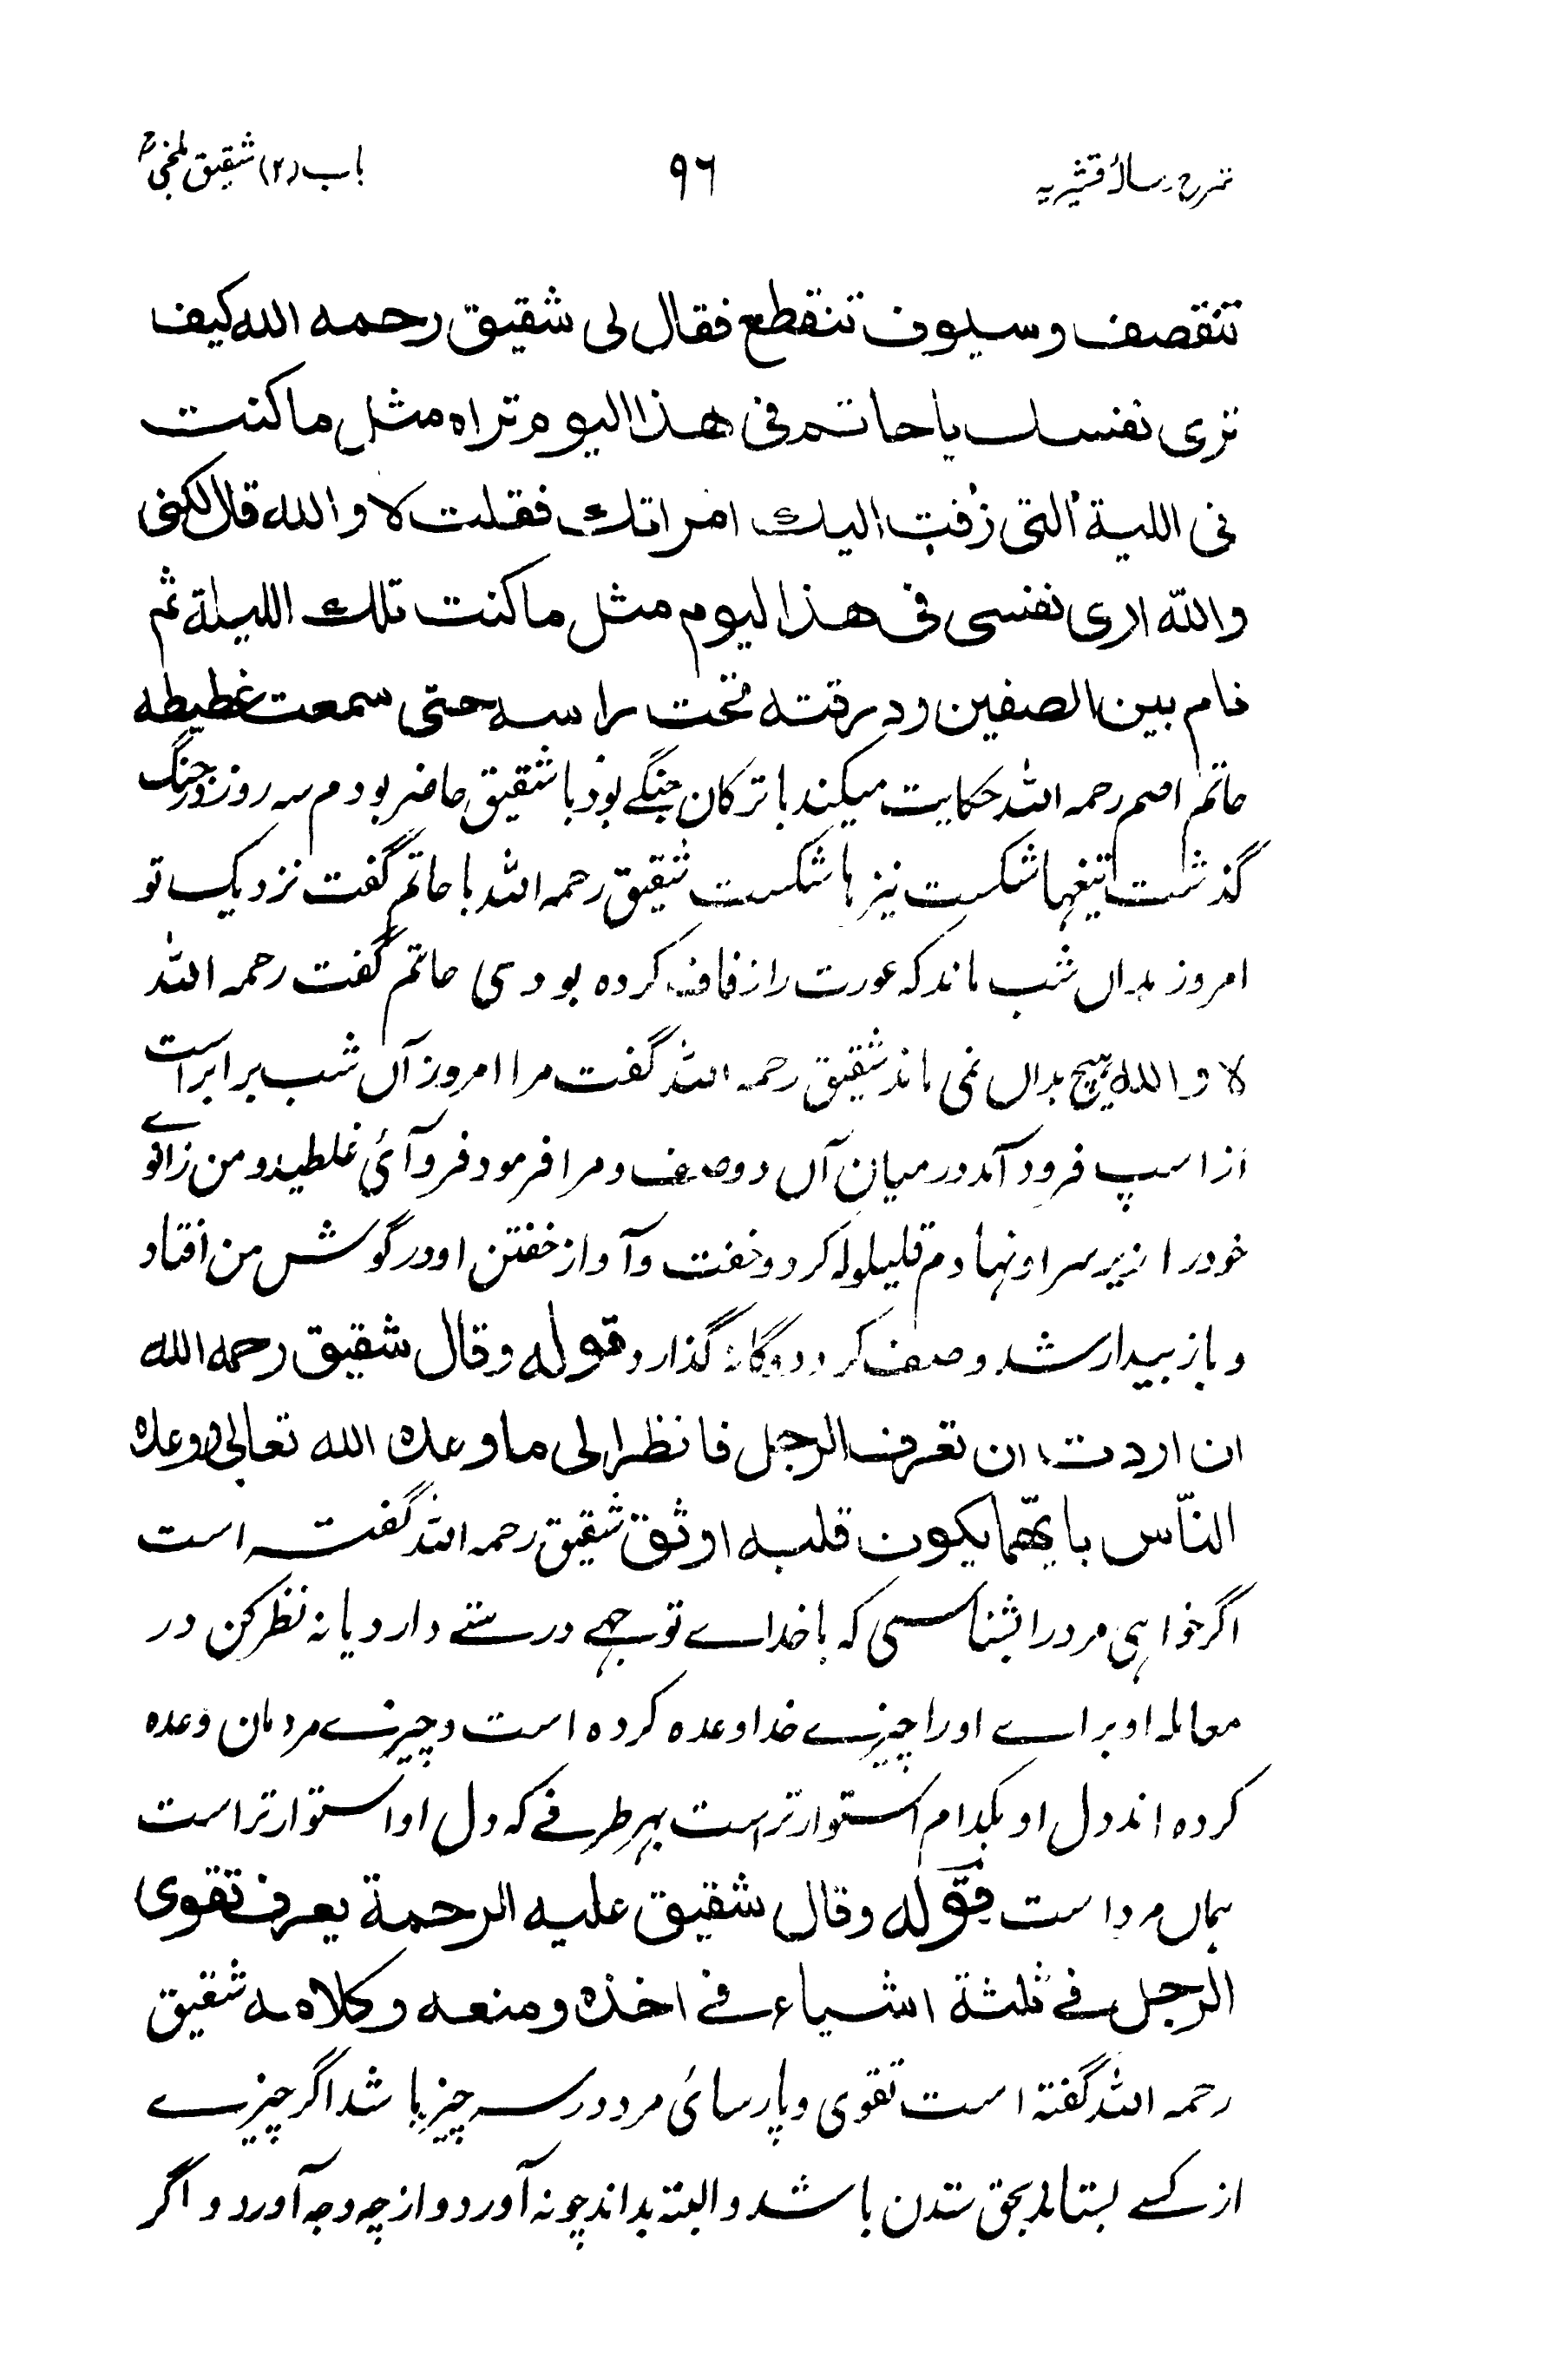 شرح رسالۂ قشیریہ ۹۶ باب (۲) شقیق بلخیؒ
تنقصف وسیوف تنقطع فقال لی شقیق رحمه الله کیف
تری نفسك یا حاتم فی هذا الیوم تراه مثل ما کنت
فی اللیة التی زفت الیك امراتك فقلت لا والله قال لکنی
والله اری نفسی فی هذا الیوم مثل ما کنت تلك اللیلة ثم
نام بین الصفین ودرقته تحت راسه حتی سمعت غطیطه
حاتم اصم رحمہ اللہ حکایت میکند با ترکان جنگے بود با شقیق حاضر بودم سہ روز در جنگ
گذشت تیغہا شکست نیز ہا شکست شقیق رحمہ اللہ با حاتم گفت نزدیک تو
امروز بداں شب ماند کہ عورت را زفاف کردہ بودی حاتم گفت رحمہ اللہ
لا والله ہیچ بداں نمی ماند شقیق رحمہ اللہ گفت مرا امروز آں شب برابر است
از اسپ فرود آمد درمیان آں دو صف و مرا فرمود فرو آئی غلطید و من زانوے
خود را زیر سر او نہادم قلیلولہ کرد و خفت و آواز خفتن او در گوش من افتاد
و باز بیدار شد و صف کرد دوگانہ گذارد قوله وقال شقیق رحمه الله
ان اردت ان تعرف الرجل فانظر الی ما وعده الله تعالی ووعده
النّاس بایّهما یکون قلبه اوثق شقیق رحمہ اللہ گفتہ است
اگر خواہی مرد را بشناسی کہ با خداے توجہے درستے دارد یا نہ نظر کن در
معاملہ او براے اورا چیزے خدا وعدہ کردہ است و چیزے مردمان وعدہ
کردہ اند دل او بکدام استوارتر است بہر طرفے کہ دل او استوارتر است
ہماں مرد است قوله وقال شقیق علیه الرحمة یعرف تقوی
الرجل فی ثلثة اشیاء فی اخذه ومنعه وکلامه شقیق
رحمہ اللہ گفتہ است تقوی و پارسائی مرد در سہ چیز باشد اگر چیزے
از کسے بستاند بحق ستدن باشد و البتہ بداند چونہ آورد و از چہ وجہ آورد و اگر